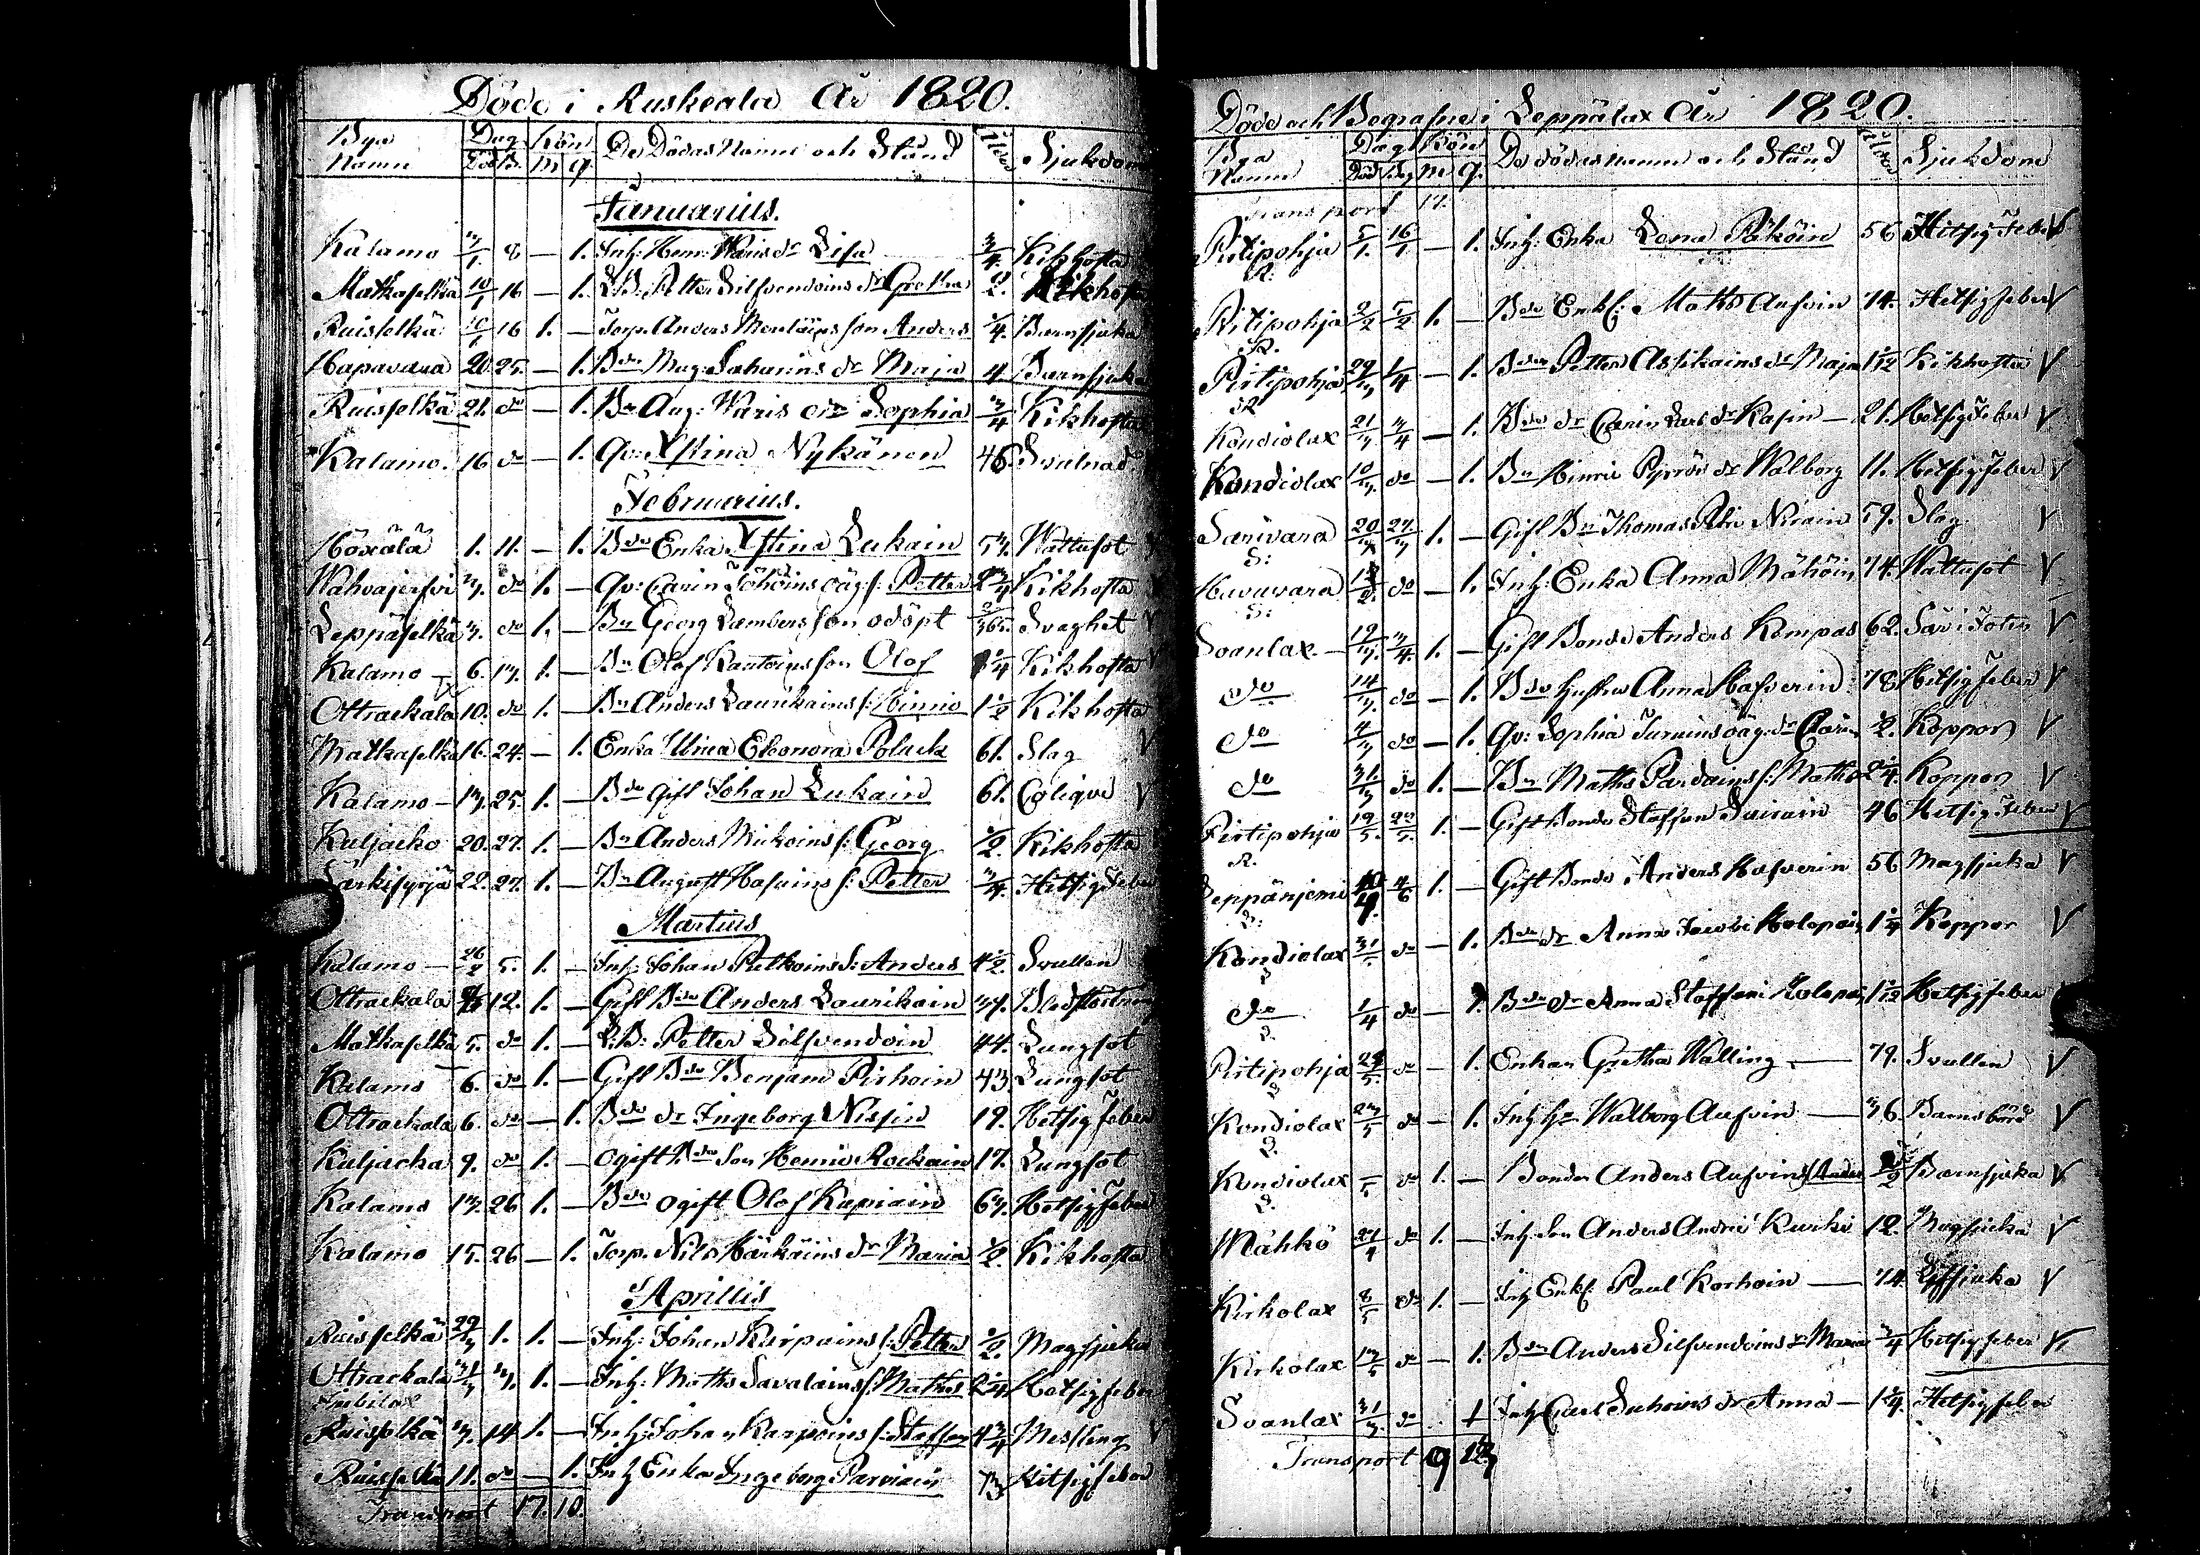 Döde i Ruskeala År 1820.
Bya Namn Dag Död B. Kön M Q De Dödas Namn och Stånd Ålder Sjukdom
Januarius.
Kalamo 3/1 8 — 1. Inh: Henr: Waris dr Lisa 3/4. Kikhosta
Matkaselkä 10/1 16 — 1. L.B. Petter Silfvendoins dr Gretha 2. Kikhosta
Ruisselkä 10/1 16 1. — Torp. Anders son Anders 1/4. Barnsjuka
Hapavaara 20. 25. — 1. Bdn Mag: dr Maja 4. Barnsjuka
Ruisselkä 21. do — 1. Bn Aug: Waris dr Sophia 3/4 Kikhosta
Kalamo. 16 do — 1. Qv: Xstina Nykänen 46. Svulnad
Februarius.
Höxälä 1. 11. — 1. Bde Enka Xstina Lukain 57. Wattusot
Wahvajerfvi 3. do 1. — Qv: Carin oäg: s: Petter 2 3/4 Kikhosta
Leppäselkä 3. do 1. — Bn Georg Lembers son odöpt 2/365. Svaghet
Kalamo — 6. 13. 1. — Bn Olof son Olof 1/4 Kikhosta
Ottrackala 10. do 1. — Bn Anders Laurikains s: Hinric 1 1/2 Kikhosta
Matkaselkä 16. 24. — 1. Enka Ulrica Eleonora Polack 61. Slag
Kalamo — 13. 25. 1. — Bde Gift Johan Lukain 61. Colique
Kuljacko 20. 27. 1. — Bn Anders Mickoins s: Georg 1/2. Kikhosta
Särkisyrjä 22. 27. 1. — Bn August s: Petter 3/4. Hetsig Feber
Martius
Kalamo — 26/2 5. 1. — Inh: Johan Pulkoins s: Anders 4 1/2. Svullen
Ottrackala 12. 1. — Gift Bde Anders Laurikain 37. Blodstörtning
Matkaselkä 5. do 1. — L.B: Petter Silfvendoin 44. Lungsot
Kalamo 6. do 1. — Gift Bde Benjam Pirhoin 43. Lungsot
Ottrackala 6. do — 1. Bde dr Ingeborg Nissin 19. Hetsig Feber
Kuljacka 9. do 1. — Ogift Bde son Henric Rockain 17. Lungsot
Kalamo 13. 26 1. — Bde ogift Olof Kapiain 63. Hetsig Feber
Kalamo 15. 26 — 1. Torp. Nils Härkäins dr Maria 1/2. Kikhosta
Aprillis
Ruisselkä 29/3 1. 1. — Inh: Johan Karpains s: Petter 1/2. Magsjuka
Ottrackala 31/3 3. 1. — Inh: Maths Savalains s: Mathes 2 1/4 Hetsig feber
Ruisselkä 3. 14 1. — Inh: Johan Karpoins s: Staffan 4 3/4 Messling
Ruisselkä 11. do — 1. Inh Enka Ingeborg Parviain 73 Hetsig feber
Transport 17. 10.
Döde och Begrafne i Leppälax År 1820.
Bya Namn Dag Död Beg Kön M Q. De dödas namn och Stånd Ålder Sjukdom
Transport 17.
Pirtipohja R. 5/1. 16/1 — 1. Inh: Enka Lena Pököin 56 Hetsig Feber V
Pirtipohja R. 2/2 5/2 1. — Bde Enkl: Maths Aufvin 74. Hetsig feber V
Pirtipohja R 29/3 1/4 — 1. Bdn Petter Assikains dr Maja 1 1/12 Kikhosta V
Kondiolax 21/3 3/4 — 1. Bde dr Carin Lars dr Kasin — 21. Hetsig Feber V
Kondiolax 10/3. do — 1. Bn Hinric dr Walborg 11. Hetsig Feber V
Sarivara S: 20/3 27/3 1. — Gift Bn Thomas Petri Nirain 59. Slag V
Havuvara S: do — 1. Inh: Enka Anna Mähöin 74. Wattusot V
Soanlax — 19/3. 3/4. 1. — Gift Bonde Anders Kompas 62. Sår i Foten V
do 14/3. do — 1. Bde Hustru Anna Hafverin 78 Hetsig feber V
do 4/3 do — 1. Qv: Sophia oäg: dr Carin 1/2. Koppor V
do 31/3 do 1. — Bn Maths Pardains s: Maths 2 1/4. Koppor V
Pirtipohja R. 19/5. 1. — Gift Bonde Staffan Suirain 46 Hetsig Feber V
Leppänjemi 4/6 1. — Gift Bonde Anders Hafverin 56 Magsjuka V
Kondiolax 31/5. do — 1. Bde dr Anna Jacobi Holopain 1 1/4 Koppor V
do 1/4 do — 1. Bde dr Anna Staffani Holopain 1 1/12 Hetsig feber
Pirtipohja 24/5. do — 1. Enkan Gretha Walling — 79. Svullen V
Kondiolax 23/5 do — 1. Inh hu Walborg Aufvin — 36 Barnsbörd V
Kondiolax do 1. — Bonden Anders Aufvins s: Anders Barnsjuka V
Mähkö 27/4 do 1. — Inh Son Anders Andrei Kurki 12. Magsjuka V
Kirkolax 8/5 do 1. — Inh Enkl: Paul Korhoin — 74. V
Kirkolax 13/5 do — 1. Bdn Anders Silfvendoins dr Maria 3/4 Hetsig feber V
Soanlax 31/3. do 1 Inh Carl Inhoins dr Anna — 1 1/4. Hetsig feber
Transport 9 13